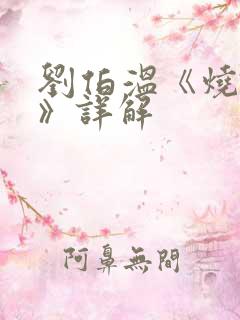 劉伯溫《燒
》詳解
阿鼻無間